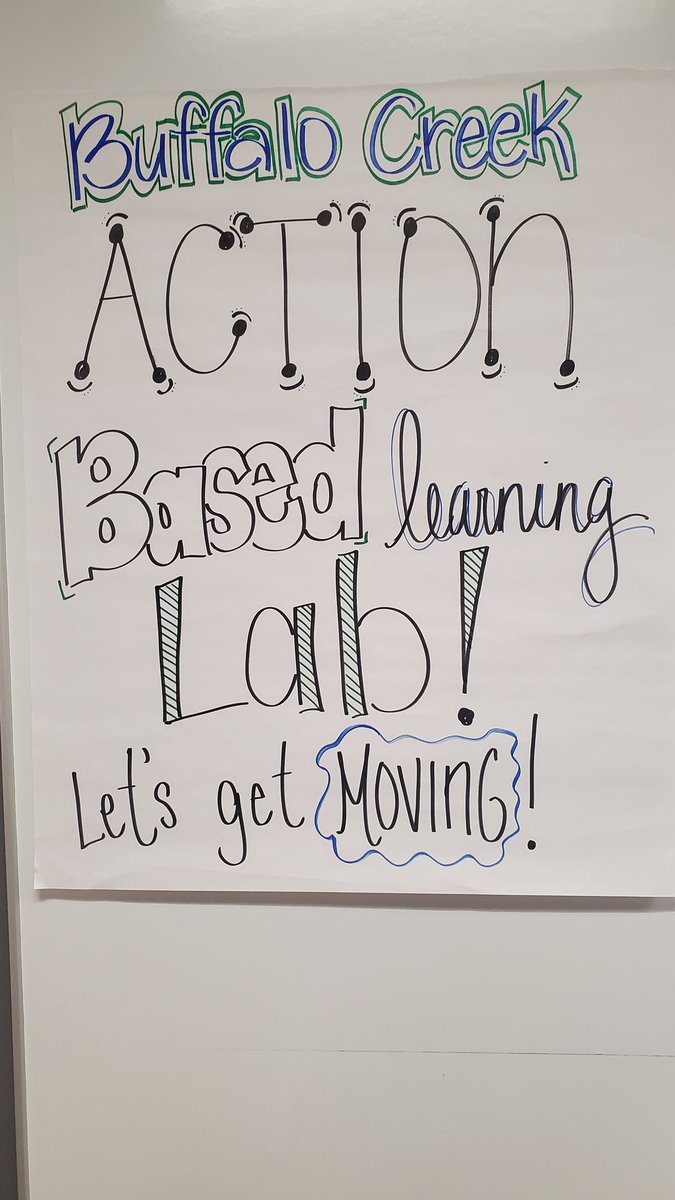 Buffalo Creek
ACTION
Based learning
Lab!
Let's get MOVING!